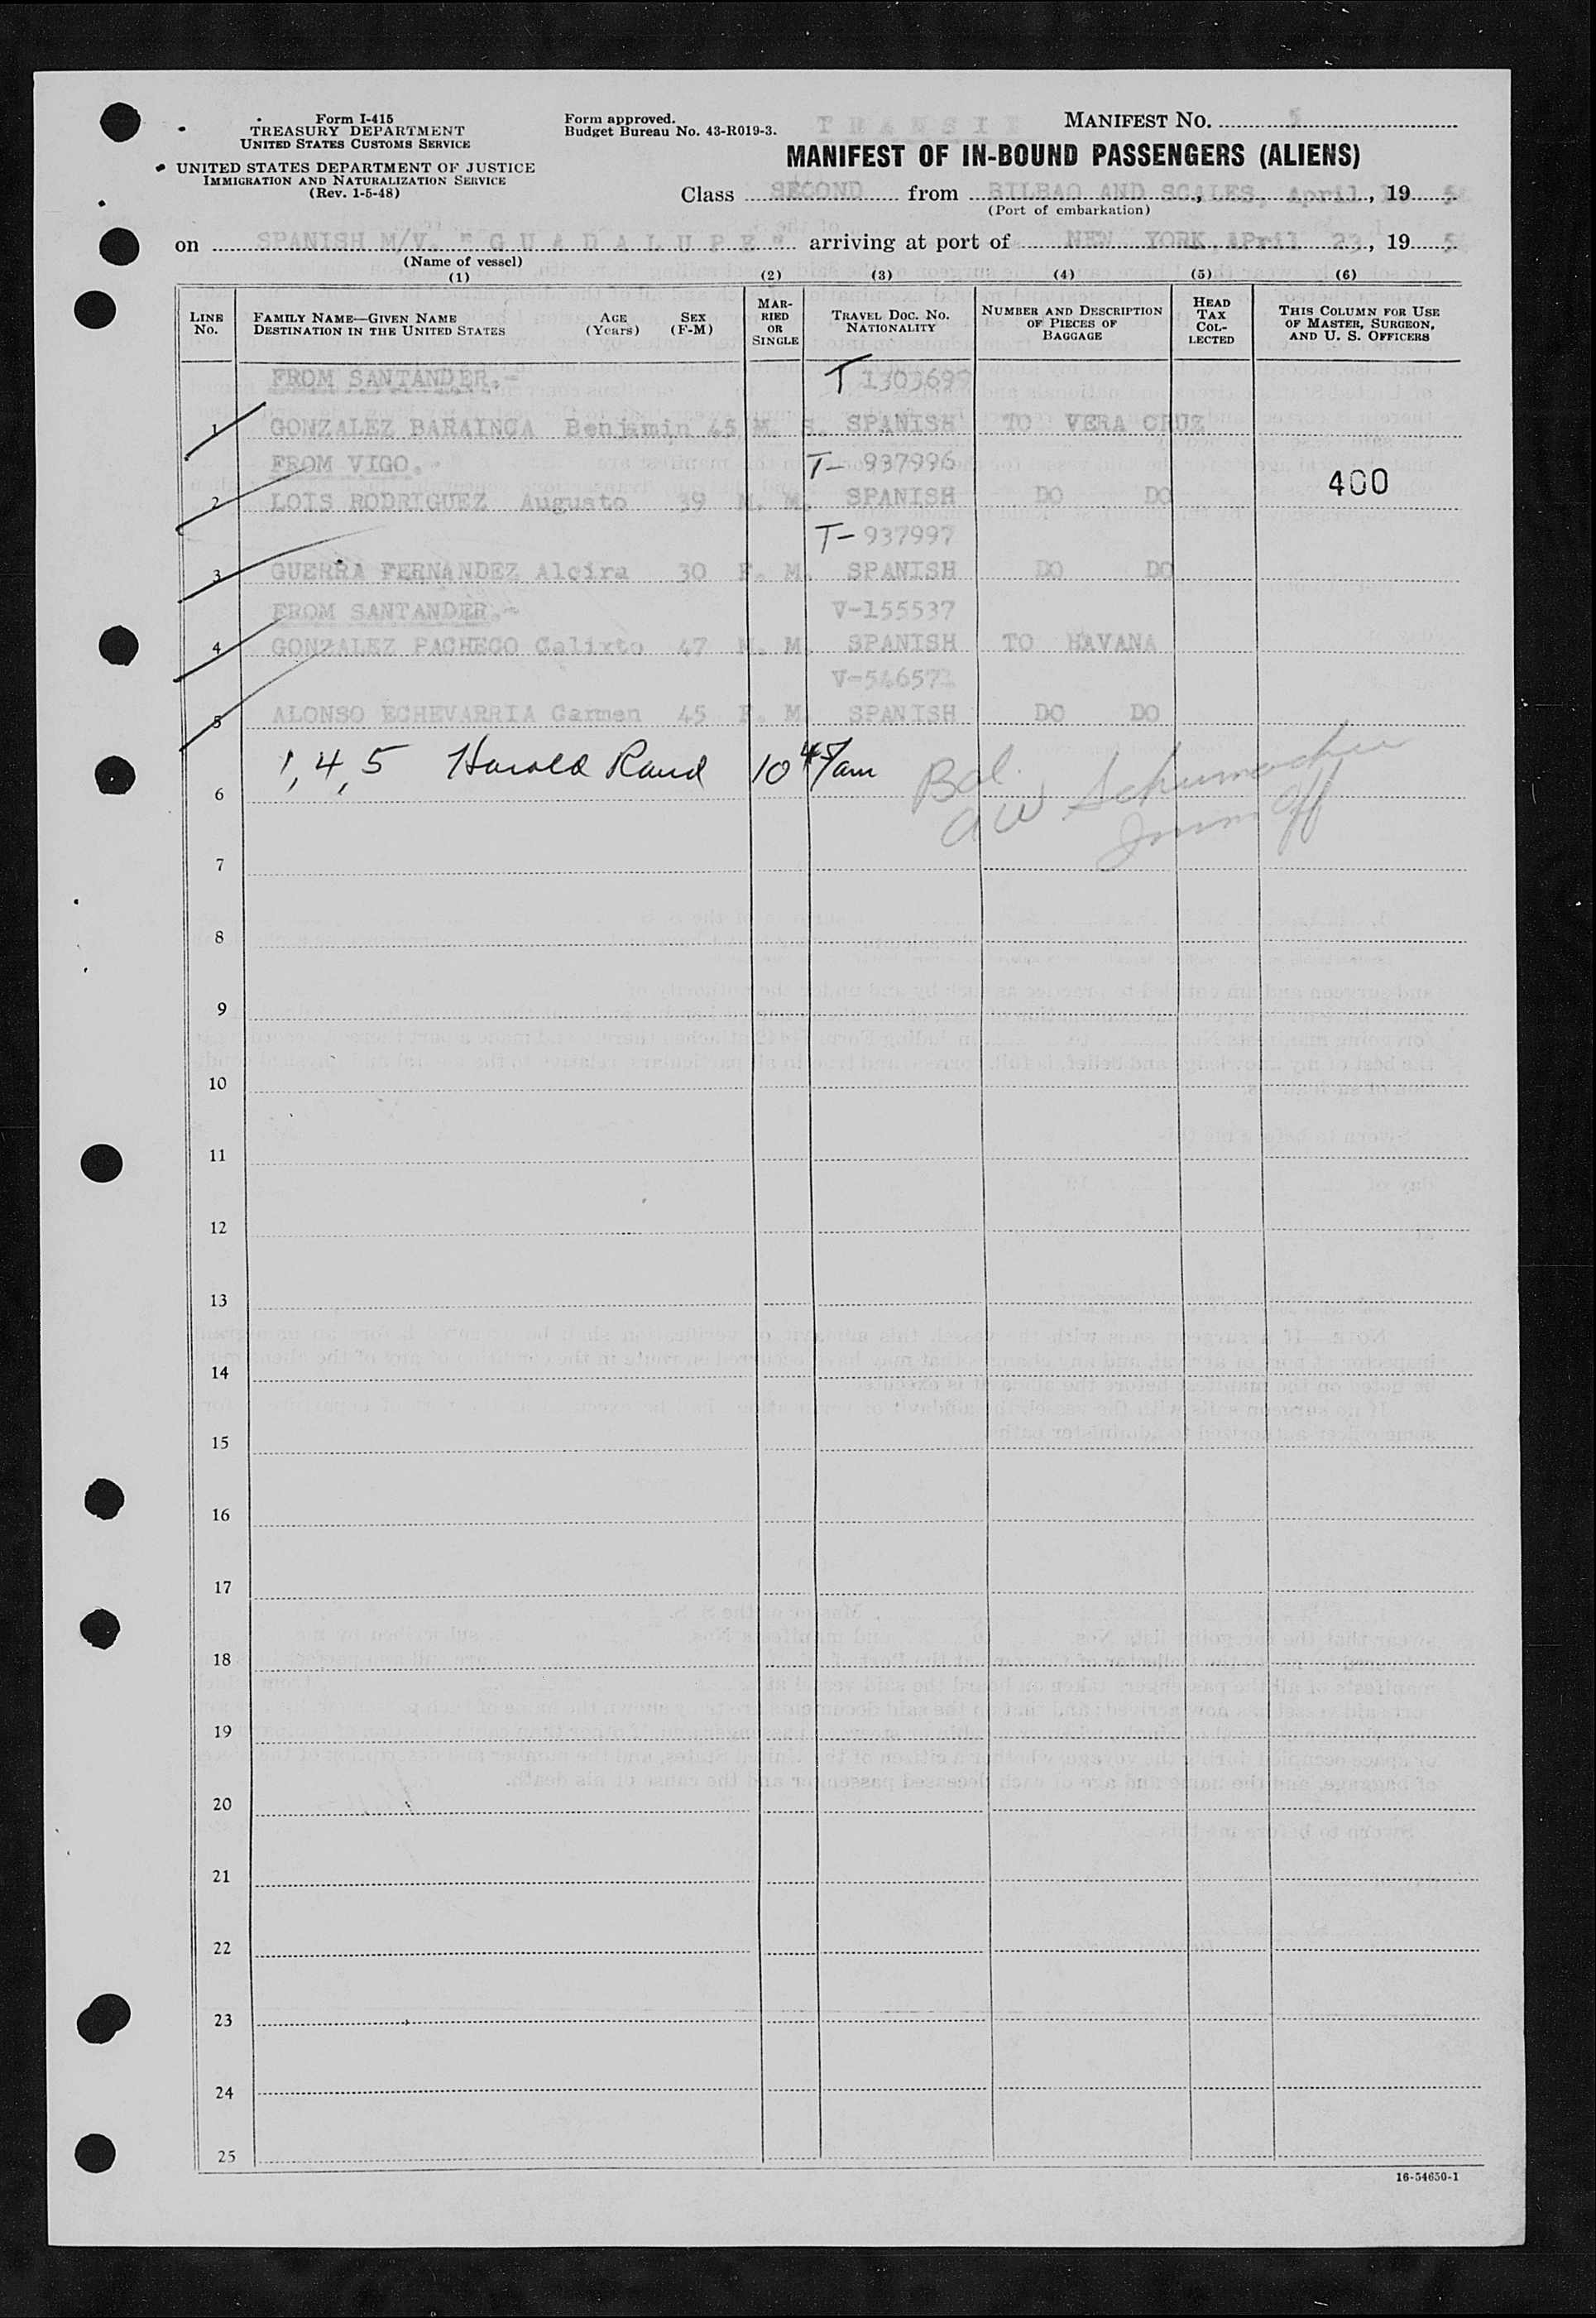 Form I-415
TREASURY DEPARTMENT
UNITED STATES CUSTOMS SERVICE
UNITED STATES DEPARTMENT OF JUSTICE
IMMIGRATION AND NATURALIZATION SERVICE
(Rev. 1-5-48)
Form approved.
Budget Bureau No. 43-R019-3.
TRANSIT
MANIFEST NO.
MANIFEST OF IN-BOUND PASSENGERS (ALIENS)
Class SECOND from BILBAO AND SCALES, April , 19 5
(Port of embarkation)
on SPANISH M/V. "GUADALUPE" arriving at port of NEW YORK, APril 23, 19 5
(Name of vessel)
(1) (2) (3) (4) (5) (6)
LINE No. FAMILY NAME—GIVEN NAME DESTINATION IN THE UNITED STATES AGE (Years) SEX (F-M) MARRIED OR SINGLE TRAVEL DOC. NO. NATIONALITY NUMBER AND DESCRIPTION OF PIECES OF BAGGAGE HEAD TAX COLLECTED THIS COLUMN FOR USE OF MASTER, SURGEON, AND U. S. OFFICERS
FROM SANTANDER.- T 1303699
1 GONZALEZ BARAINCA Benjamin 45 M. S. SPANISH TO VERA CRUZ
FROM VIGO.- T- 937996
2 LOIS RODRIGUEZ Augusto 39 M. M. SPANISH DO DO 400
T- 937997
3 GUERRA FERNANDEZ Alcira 30 F. M. SPANISH DO DO
FROM SANTANDER.- V-155537
4 GONZALEZ PACHECO Calixto 47 M. M. SPANISH TO HAVANA
V-546571
5 ALONSO ECHEVARRIA Carmen 45 F. M. SPANISH DO DO
1, 4, 5 Harold Rand 10 45/am Bal.
6 AW Schumacher
Imm Off
7
8
9
10
11
12
13
14
15
16
17
18
19
20
21
22
23
24
25
16-54650-1